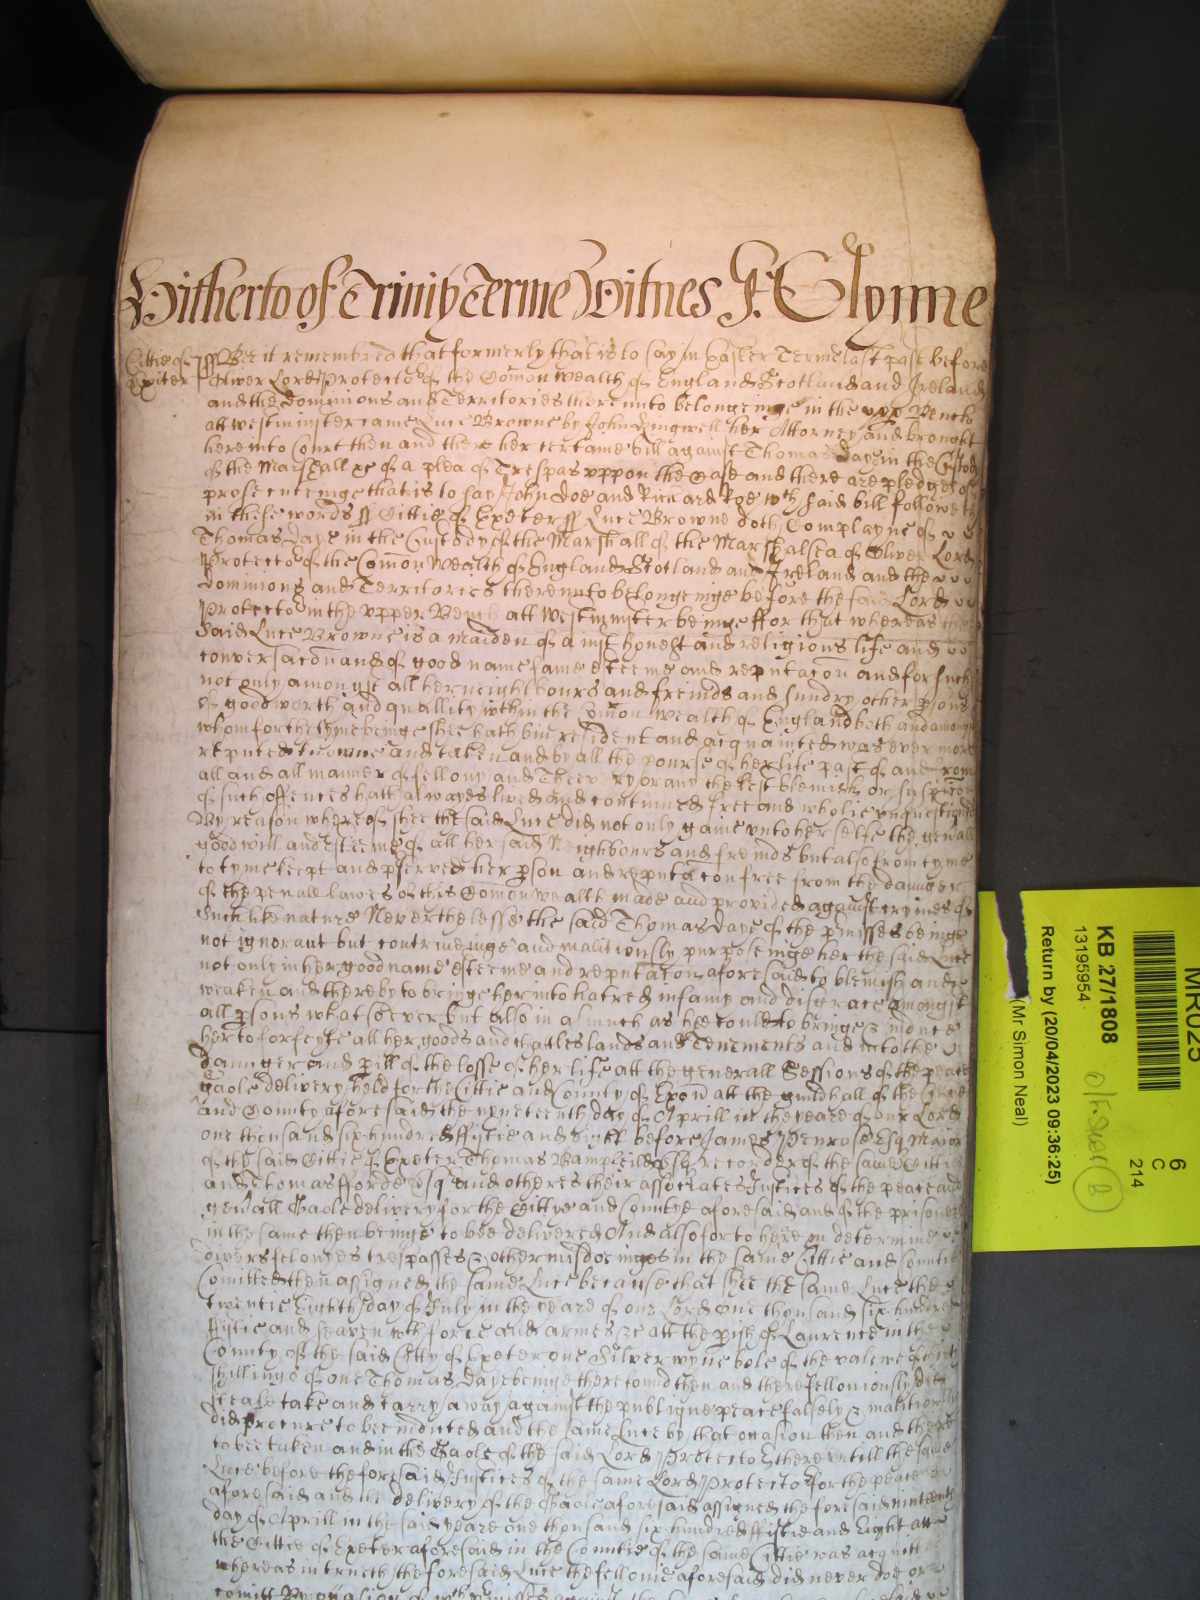 Hitherto of Trinity Terme Witnes J. Glynne
Cittie of
Exiter
ss Be it remembred that formerly that is to say in Easter Terme last past before
Oliver Lord Protector of the Comon wealth of England Scotland and Ireland
and the Dominions and Territories thereunto belongeinge in the upp Bench
att westminster came Luce Browne by John Ringwell her Attorney and brought
here into Court then and there her certaine bill against Thomas Daye in the Custody
of the Marshall &c of a plea of Trespas uppon the Case and there are pledges of
prosecuteinge that is to say John Doe and Richard Roe wch said bill followeth
in these words ss Cittie of Exeter ss Luce Browne doth Complayne of
Thomas Daye in the Custody of the Marshall of the Marshalsea of Oliver Lord
Protector of the Comon Wealth of England Scotland and Ireland and the
Dominions and Territories thereunto belongeinge before the said Lord
Protector in the upper Bench att Westminster beinge ffor that whereas the
said Luce Browne is a maiden of a iust honest and religious life and
conversacon and of good name fame esteeme and reputacon and for such
not only amongst all her neighbours and freinds and sundry other psons
of good worth and quallity within the Comon wealth of England both and amongst
whom for the tyme beinge shee hath bin resident and acquainted was ever more
reputed knowne and taken and by all the course of her life past of and from
all and all manner of fellony and Theevery or any the lest blemish or suspicon
of such offences hath alwayes lived and continued free and wholie unquestioned
By reason whereof shee the said Luce did not only gaine unto her selfe the genall
good will and esteeme of all her said Neighbours and freinds but also from tyme
to tyme kept and pserved her pson and reputacon free from the daunger
of the penall lawes of this Comon wealth made and provided against crymes of
such like nature Neverthelesse the said Thomas Daye of the pmisses beinge
not ignorant but contriveinge and malitiously purposeinge her the said Luce
not only in her good name esteeme and reputacon aforesaid to blemish and
weaken and thereby to bringe her into hatred infamy and disgrace amongst
all psons whatsoever but also in asmuch as hee could to bringe & induce
her to forfeyte all her goods and chattles lands and Tenements and into the
daunger and pill of the losse of her life att the generall Sessions of the peace
gaole delivery held for the Cittie and County of Exon att the guildhall of the Cittie
and County aforesaid the nyneteenth day of Aprill in the yeare of our Lord
one thousand six hundred ffiftie and Eight before James Penrose Esq Maior
of the said Cittie of Exeter Thomas Bampfeild Esq recorder of the same Cittie
and Thomas fforde Esq and others their associates Justices of the peace and
genall Gaole delivery for the Cittye and Countye aforesaid and of the prisoners
in the same then beinge to bee delivered And also for to heare and determine
divers felonyes trespasses & other misdoeinges in the same Cittie and Countie
Comitted then assigned the same Luce because that shee the same Luce the
twentie Eighth day of July in the yeare of our Lord one thousand six hundred
ffiftie and seaven wth force and armes &c att the pish of Laurence in the
County of the said Citty of Exeter one Silver wyne bole of the valewe of
shillings of one Thomas Daye beinge there found then and there felloniously did
steale take and carry away against the publique peace falsely & malitiously
did procure to bee indicted and the same Luce by that occasion then and there
to bee taken and in the Gaole of the said Lord Protector there untill the same
Luce before the foresaid Justices of the same Lord Protector for the peace
aforesaid and the delivery of the Gaole aforesaid assigned the foresaid nineteenth
day of Aprill in the said yeare one thousand six hundred ffiftie and Eight att
the Cittie of Exeter aforesaid in the Countie of the same Cittie was acquitted
whereas in trueth the foresaid Luce the fellonie aforesaid did never doe or
comitt By occasion of wch pmisses
MR025
6
C
214
KB 27/1808
13195954
Return by (20/04/2023 09:36:25)
(Mr Simon Neal)